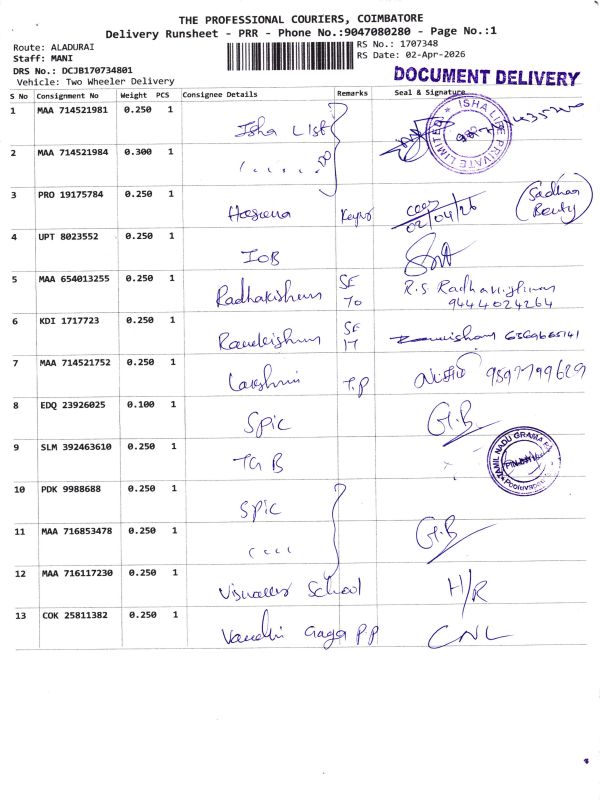 THE PROFESSIONAL COURIERS, COIMBATORE
Delivery Runsheet - PRR - Phone No.:9047080280 - Page No.:1
Route: ALADURAI
Staff: MANI
DRS No.: DCJB170734801
Vehicle: Two Wheeler Delivery
RS No.: 1707348
RS Date: 02-Apr-2026
DOCUMENT DELIVERY
S No Consignment No Weight PCS Consignee Details Remarks Seal & Signature
1 MAA 714521981 0.250 1 Isha List ISHA LIFE PRIVATE LIMITED
2 MAA 714521984 0.300 1
3 PRO 19175784 0.250 1 02/04/26
4 UPT 8023552 0.250 1 IOB
5 MAA 654013255 0.250 1 SF 70 9444024264
6 KDI 1717723 0.250 1 SF 17
7 MAA 714521752 0.250 1 Lakshmi T.P 9597799629
8 EDQ 23926025 0.100 1 Spic G.B
9 SLM 392463610 0.250 1 TGB TAMIL NADU GRAMA
10 PDK 9988688 0.250 1 Spic
11 MAA 716853478 0.250 1 G.B
12 MAA 716117230 0.250 1 School H/R
13 COK 25811382 0.250 1 CNL